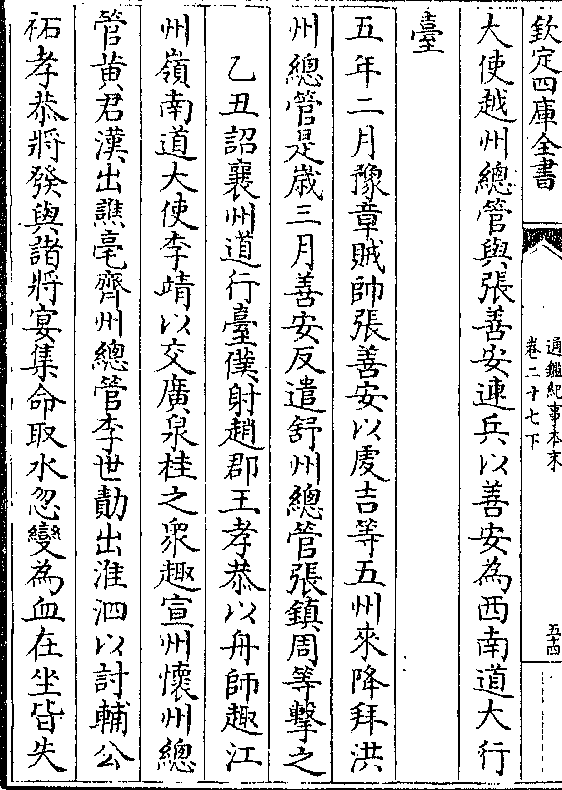 欽定四庫全書
通鑑紀事本末
卷二十七下
五十四
大使越州總管與張善安連兵以善安為西南道大行
臺
五年二月豫章賊帥張善安以虔吉等五州來降拜洪
州總管是歲三月善安反遣舒州總管張鎮周等擊之
乙丑詔襄州道行臺僕射趙郡王孝恭以舟師趣江
州嶺南道大使李靖以交廣泉桂之衆趣宣州懷州總
管黄君漢出譙亳齊州總管李世勣出淮泗以討輔公
祏孝恭將發與諸將宴集命取水忽變為血在坐皆失